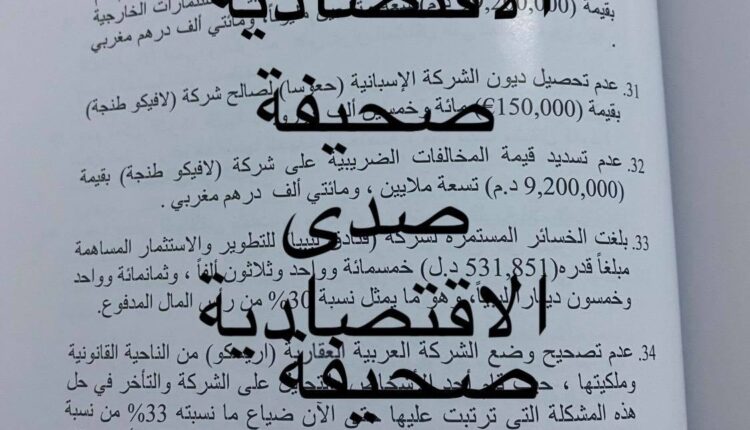 الاقتصادية
بقيمة
ومائتي ألف درهم مغربي .
31. عدم تحصيل ديون الشركة الإسبانية (حعوسا) لصالح شركة (لافيكو طنجة)
بقيمة (150,000€) مائة وخمسين ألف
صحيفة
32. عدم تسديد قيمة المخالفات الضريبية على شركة (لافيكو طنجة) بقيمة
(9,200,000 د.م) تسعة ملايين ، ومائتي ألف درهم مغربي .
صدى
33. بلغت الخسائر المستمرة لشركة (فنادق ليبيا) للتطوير والاستثمار المساهمة
مبلغاً قدره(531,851 د.ل) خمسمائة وواحد وثلاثون ألفاً ، وثمانمائة وواحد
وخمسون ديناراً ليبياً، وهو ما يمثل نسبة 30% من رأس المال المدفوع.
الاقتصادية
34. عدم تصحيح وضع الشركة العربية العقارية من الناحية القانونية
صحيفة
وملكيتها ، على الشركة والتأخر في حل
هذه المشكلة التي ترتبت عليها حتى الآن ضياع ما نسبته 33% من نسبة